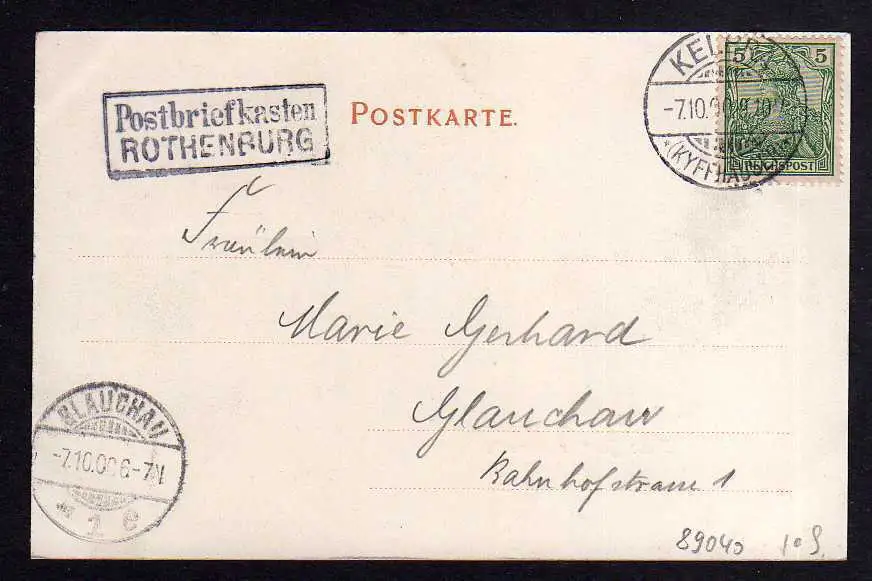 Postbriefkasten
ROTHENBURG
POSTKARTE.
KELBRA
-7.10.00
(KYFFHÄUSER)
5 5
REICHSPOST
Fräulein
Marie Gerhard
Glauchau
Bahnhofstrasse 1
GLAUCHAU
-7.10.00 6-7N
* 1 e
89040